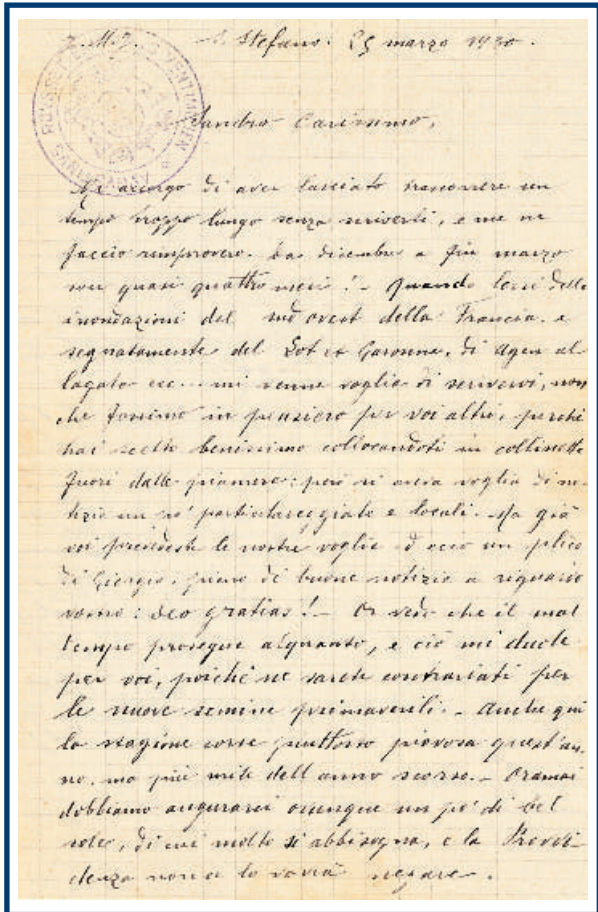 J. M. J. S. Stefano. 25 marzo 1930.
Sandro Carissimo,
Mi accorgo di aver lasciato trascorrere un
tempo troppo lungo senza scriverti, e me ne
faccio rimprovero. Da dicembre a fin marzo
son quasi quattro mesi! - Quando lessi delle
inondazioni del sud ovest della Francia e
segnatamente del Lot et Garonne, di Agen al
lagato ecc... mi venne voglia di scrivervi, non
che fossimo in pensiero per voi altri, perché
hai scelto benissimo collocandoti in collinette
fuori dalle pianure: però si aveva voglia di no
tizie un po' particolareggiate e locali. Ma già
voi prevedeste le nostre voglie ed ecco un plico
di Giorgio, pieno di buone notizie a riguardo
vostro: deo gratias! - Or vedo che il mal
tempo prosegue alquanto, e ciò mi duole
per voi, poiché ne sarete contrariati per
le nuove semine primaverili. - Anche qui
la stagione corse piuttosto piovosa quest'an.
no, ma più mite dell'anno scorso. - Oramai
dobbiamo augurarci ovunque un po' di bel
sole, di cui molto si abbisogna, e la Provvi
denza non ce lo vorrà negare.